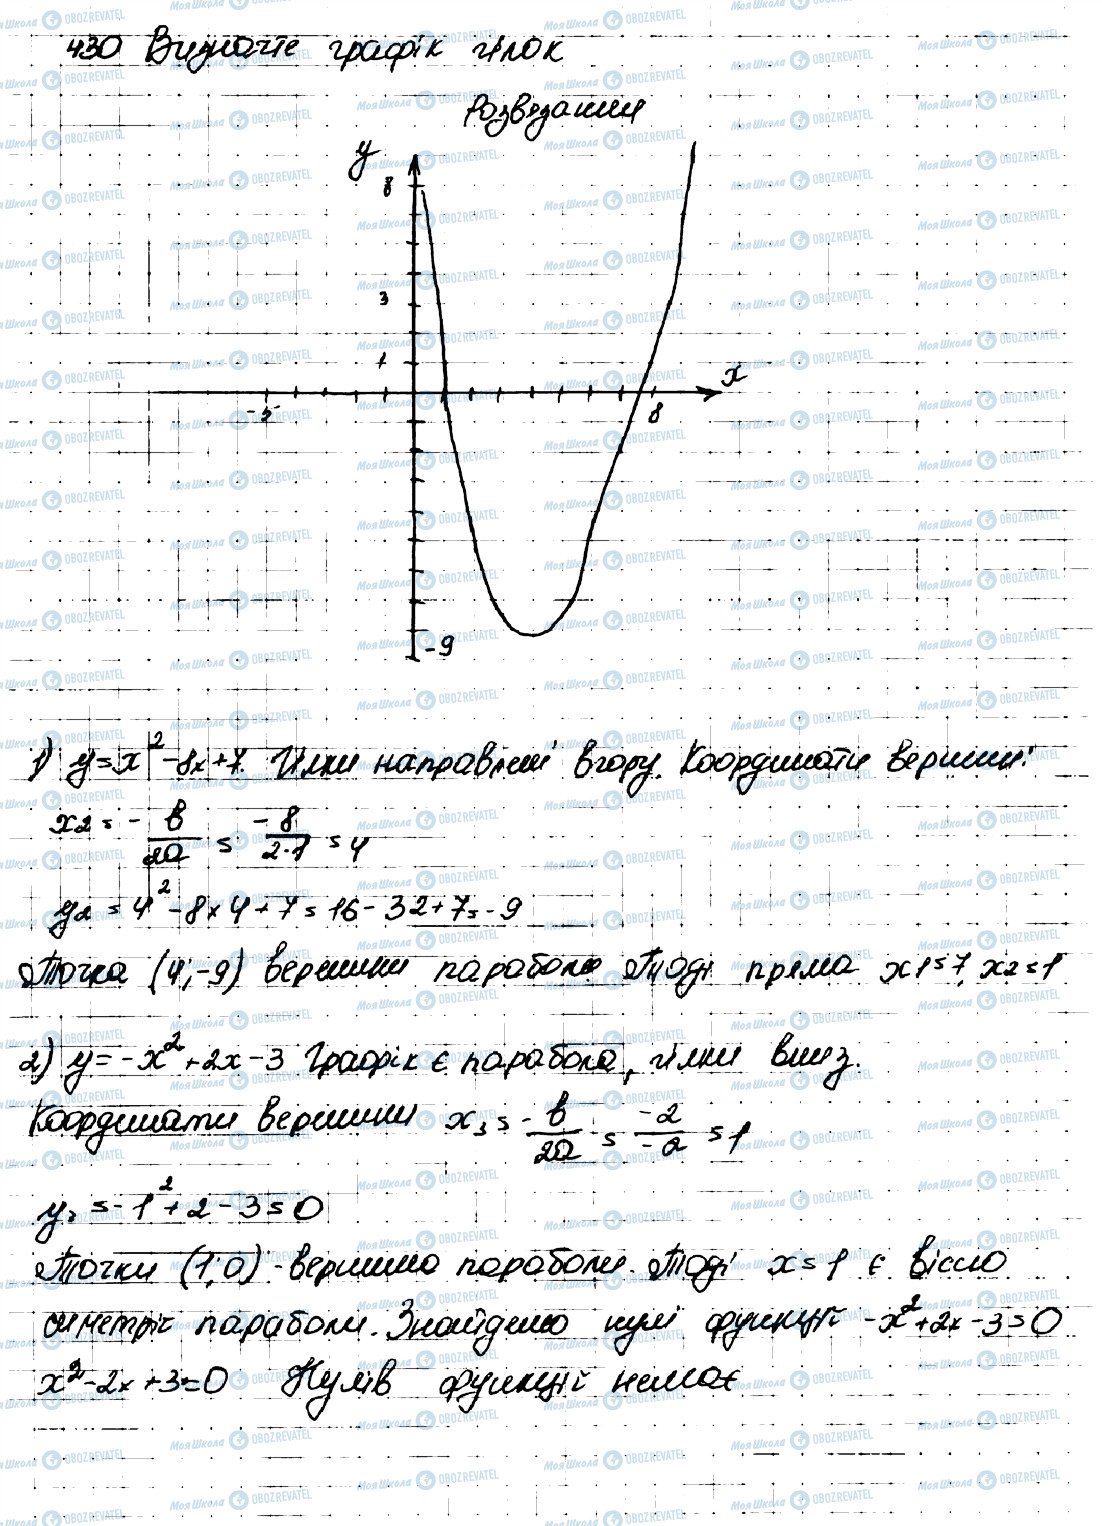 430 Визначте графік гілок
Розвязання
y
8
3
1
x
-5
8
-9
1) y=x²-8x+7. Гілки направлені вгору. Координати вершини:
x₂ = - в/2a = -8/2·1 = 4
y₂ = 4² - 8×4+7=16-32+7=-9
Точка (4;-9) вершини параболи Тоді пряма x1=7, x2=1
2) y=-x²+2x-3 Графік є парабола, гілки вниз.
Координати вершини x₃ = - в/2a = -2/-2 = 1
y₃ = -1²+2-3=0
Точки (1,0) - вершина параболи. Тоді x=1 є вісью
симетріє параболи. Знайдемо нулі функцій -x²+2x-3=0
x²-2x+3=0 Нулів функції немає